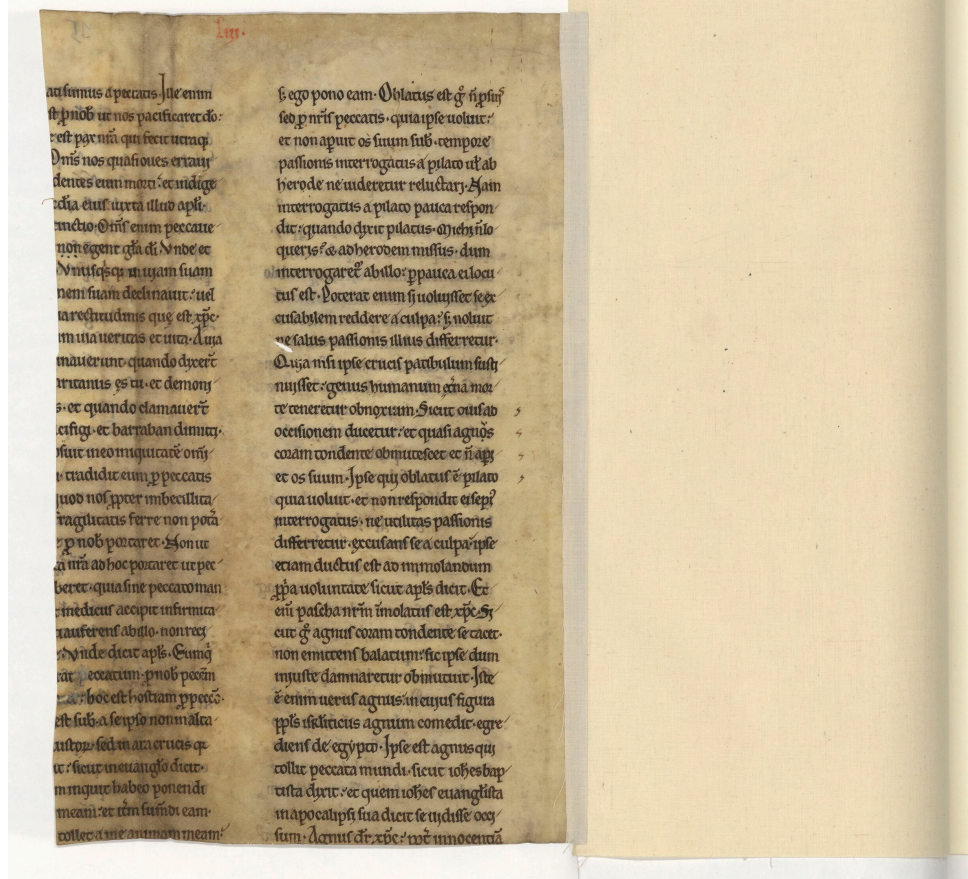 liii.
sumus a peccatis. Ille enim
st ꝓ nob̄ ut nos pacificaret do:
est pax nr̄a qui fecit utraq;
Om̄s nos quasi oues erraui
dentes eum morti: et indige
eius iuxta illud apl̄i.
tinctio. Om̄s enim peccaue
non egent gl̄a di. Vnde et
Vnusqsq; in uiam suam
nem suam declinauit: uel
ia rectitudinis que est xp̄c.
m uia ueritas et uita. A uia
inauerunt quando dixer̄t
aritanus es tu. et demoni
s. et quando clamauer̄t
cifigi. et barraban dimitti.
osuit in eo iniquitatē om̄i
tradidit eum ꝓ peccatis
quod nos ꝓpter imbecillita
fragilitatis ferre non potā
ꝓ nob̄ portaret. Non ut
nr̄a ad hoc portaret ut pec
beret. quia sine peccato man
medicus accipit infirmita
auferens ab illo. non reci
Vnde dicit apl̄s. Eum q̄
rat peccatum. ꝓ nob̄ peccm̄
hoc est hostiam ꝓ pecc̄.
est sub. a se ipso non in alta
sed in ara crucis q
it: sicut in euangl̄o dicit.
m inquit habeo ponendi
meam: et itm̄ sum̄di eam.
tollet a me animam meam:
s; ego pono eam. Oblatus est g̊ n̄ ꝓ suis
sed ꝓ nr̄is peccatis. quia ipse uoluit:
et non apuit os suum sub. tempore
passionis interrogatus a pilato ul̄ ab
herode ne uideretur reluctari. Nam
interrogatus a pilato pauca respon
dit: quando dixit pilatus. Michi n̄ lo
queris? & ad herodem missus. dum
interrogaret᷑ ab illo: ꝑpauca ei locu
tus est. Poterat enim si uoluisset se ex
cusabilem reddere a culpa: s; noluit
ne salus passionis illius differretur.
Quia nisi ipse crucis patibulum susti
nuisset: genus humanum et̄na mor
te teneretur obnoxium. Sicut ouis ad
occisionem ducetur: et quasi agnus
coram tondente obmutescet et n̄ aꝑi
et os suum. Ipse qui oblatus ē pilato
quia uoluit. et non respondit ei sepi᷑
interrogatus. ne utilitas passionis
differretur. excusans se a culpa: ipse
etiam ductus est ad immolandum
ꝓp̄a uoluntate sicut apl̄s dicit. Et
eni᷑ pascha nr̄m īmolatus est xp̄c. Si
cut g̊ agnus coram tondente se tacet.
non emittens balatum: sic ipse dum
iniuste damnaretur obmutuit. Iste
ē enim uerus agnus: in cuius figura
ppl̄s isr̄l̄iticus agnum comedit. egre
diens de egypto. Ipse est agnus qui
tollit peccata mundi. sicut ioh̄es bap
tista dixit: et quem ioh̄es euangl̄ista
in apocalipsi sua dicit se uidisse occi
sum. Agnus dr̄ xp̄c: ꝓpt̄ innocentiā